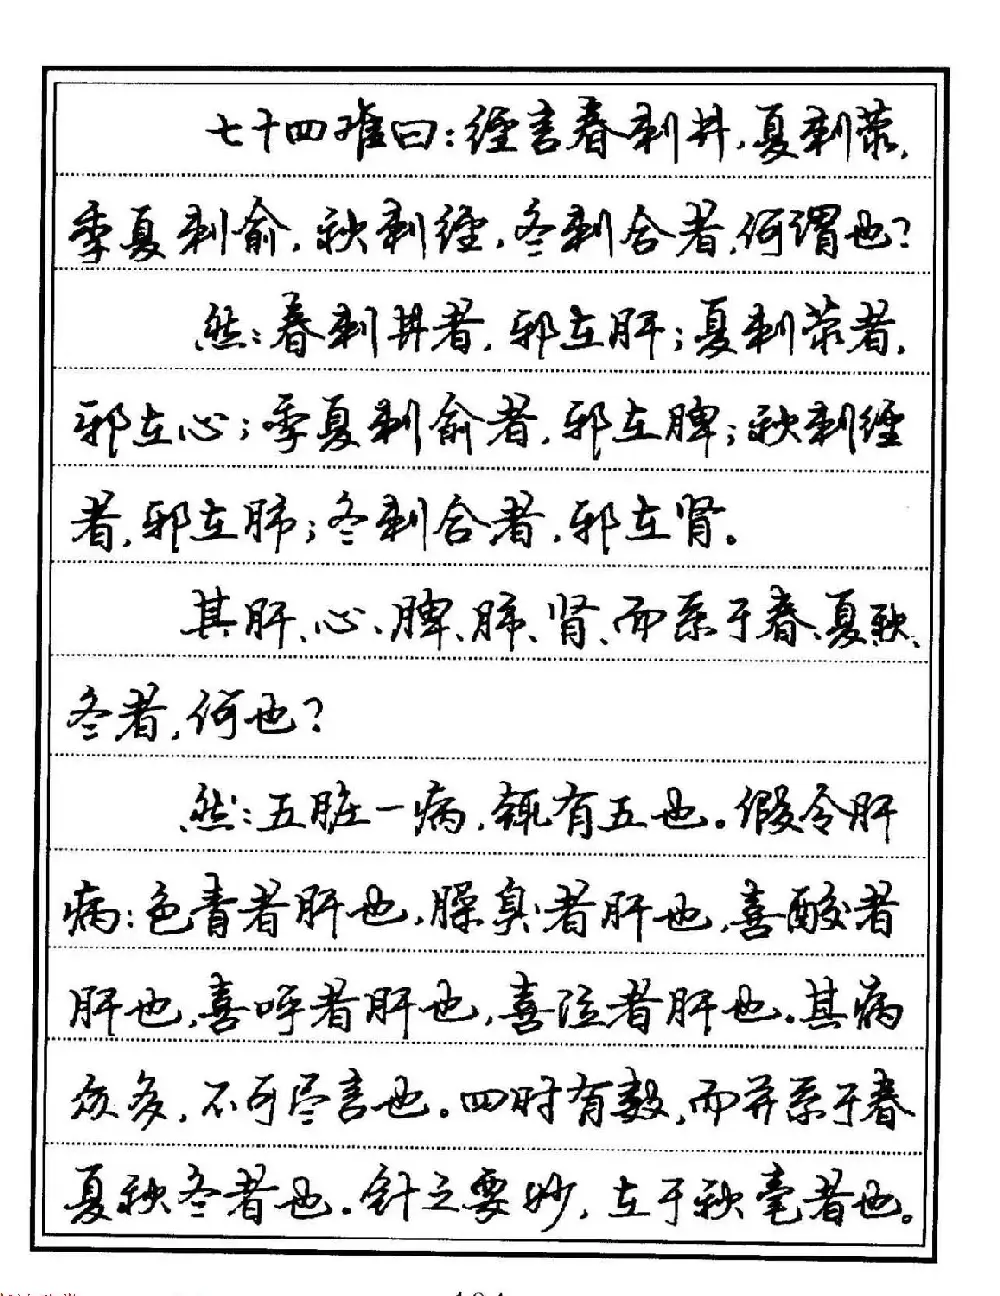 七十四难曰：经言春刺井，夏刺荥，
季夏刺俞，秋刺经，冬刺合者，何谓也？
然：春刺井者，邪在肝；夏刺荥者，
邪在心；季夏刺俞者，邪在脾；秋刺经
者，邪在肺；冬刺合者，邪在肾。
其肝、心、脾、肺、肾、而系于春、夏秋、
冬者，何也？
然：五脏一病，辄有五也。假令肝
病：色青者肝也，臊臭者肝也，喜酸者
肝也，喜呼者肝也，喜泣者肝也。其病
众多，不可尽言也。四时有数，而并系于春
夏秋冬者也。针之要妙，在于秋毫者也。